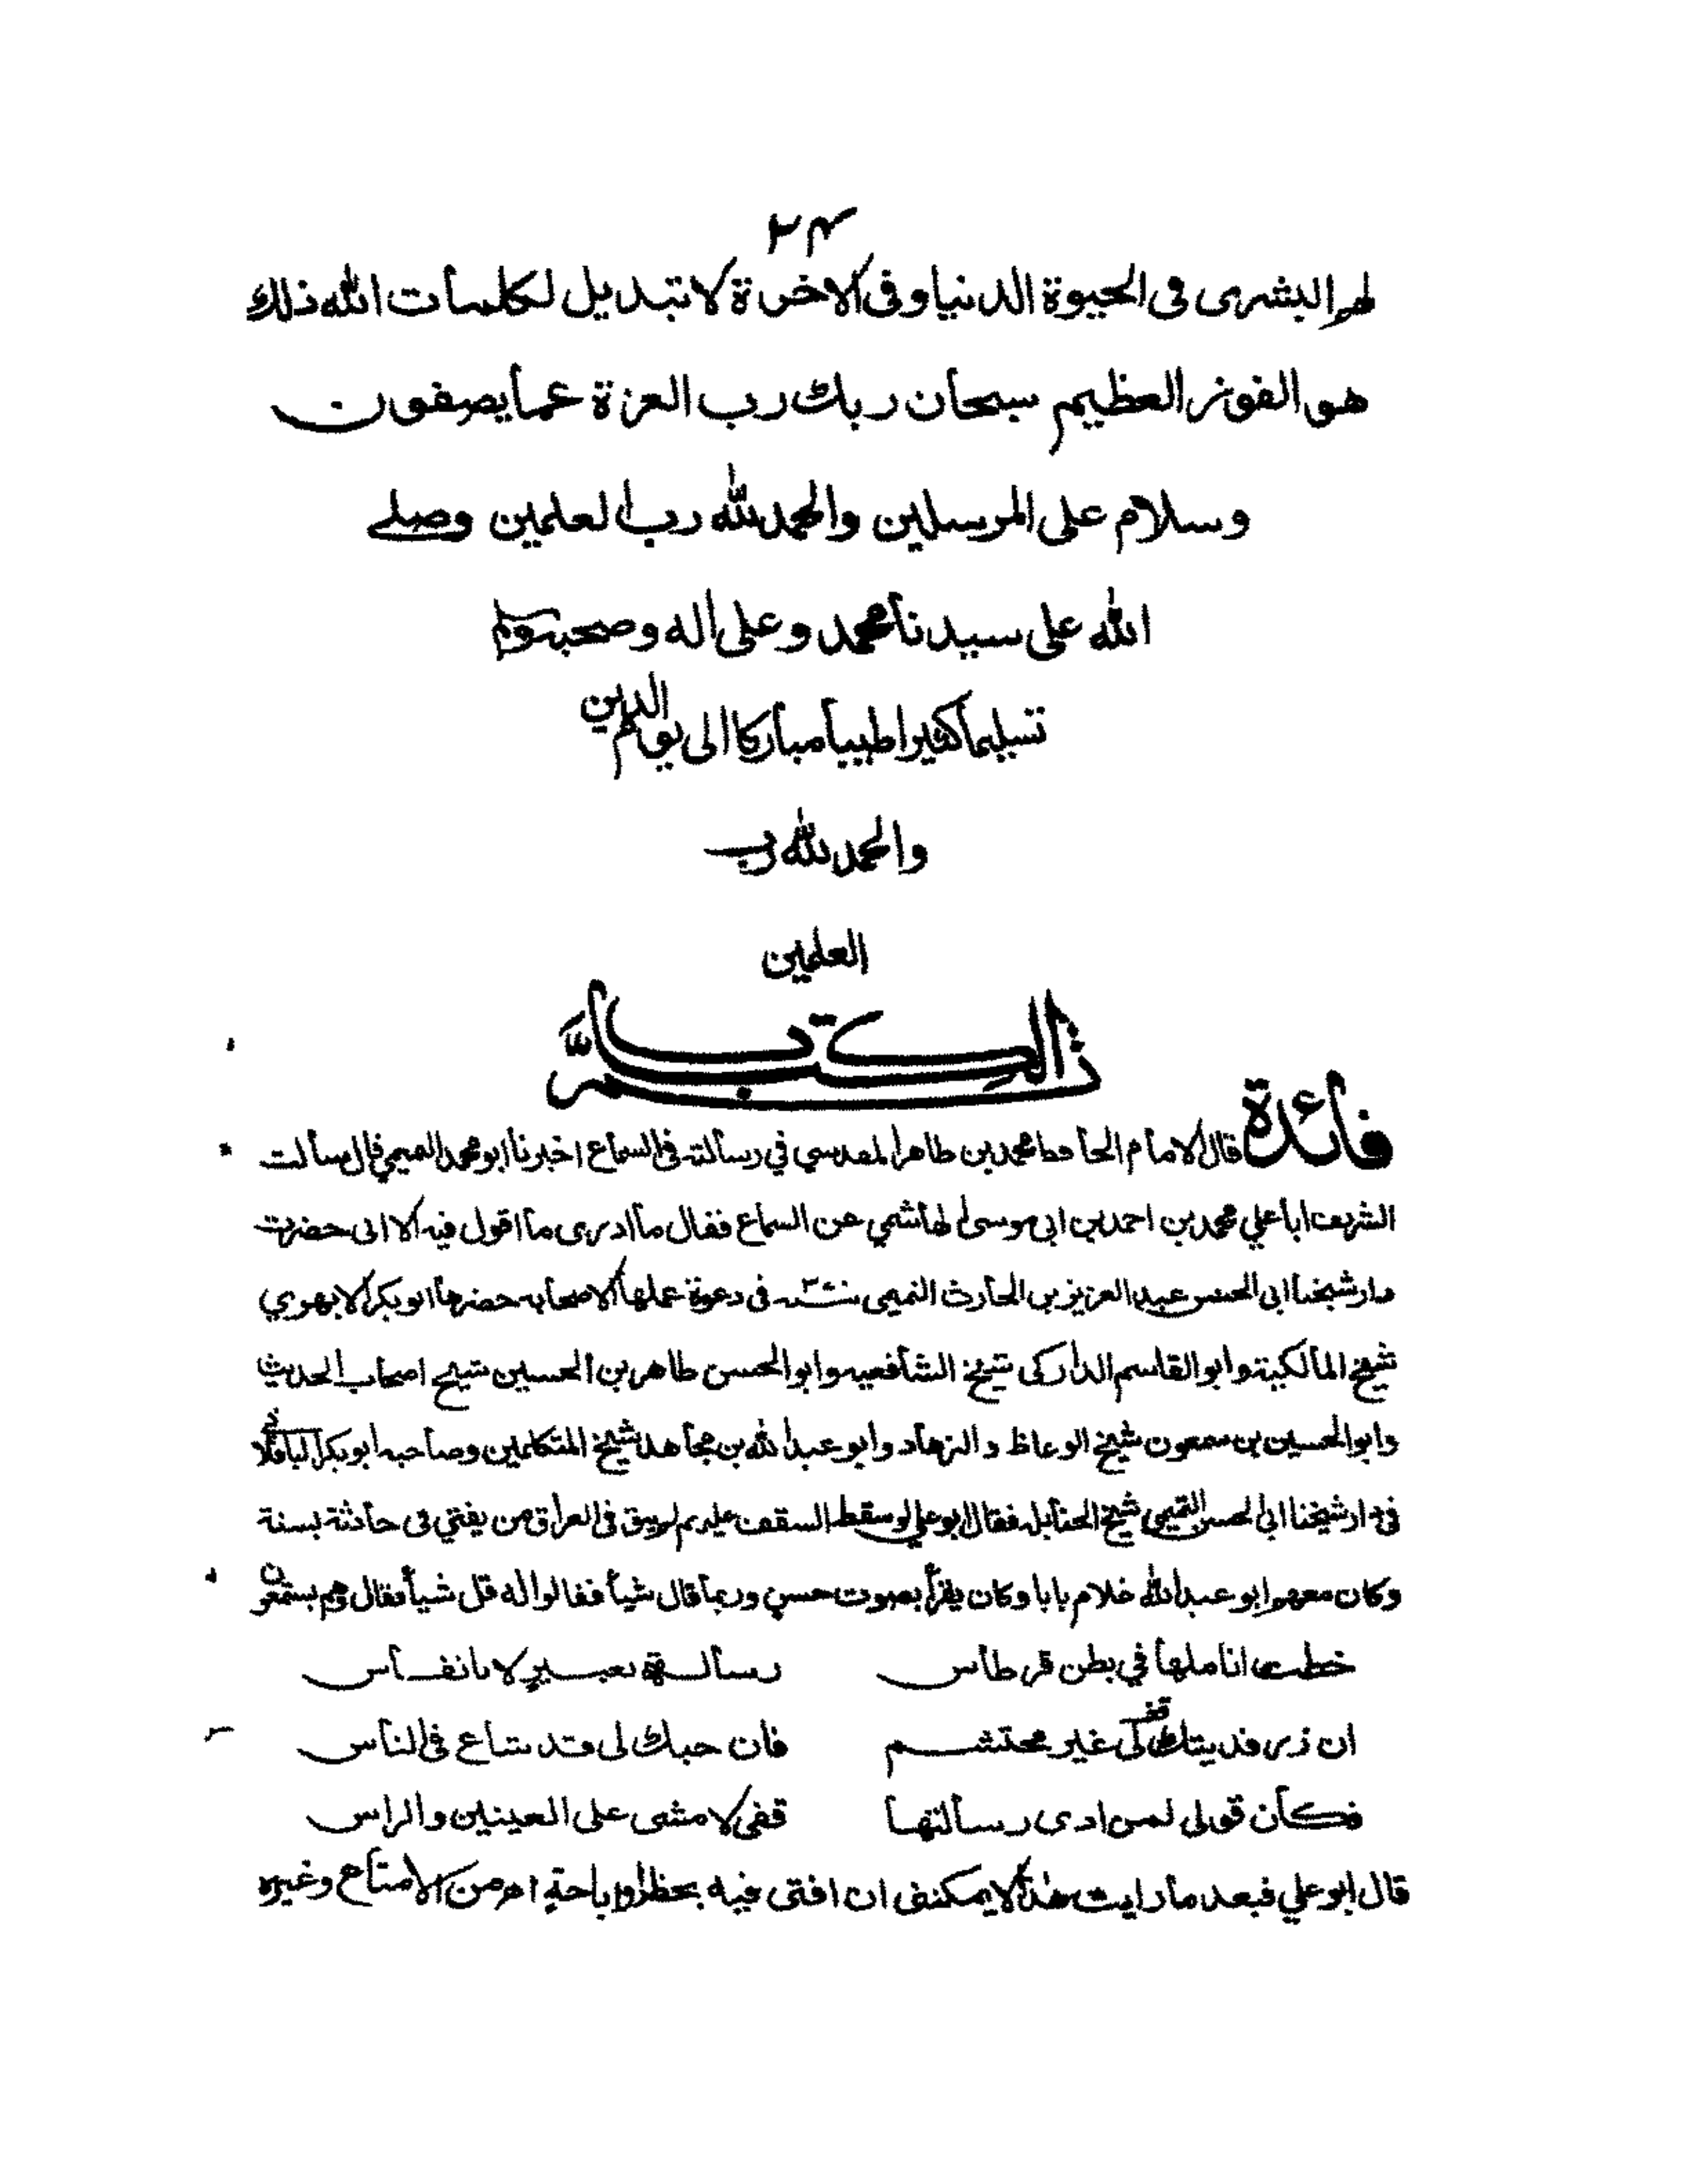 ٣٤
لهم البشرى فى الحيوة الدنيا وفى الاخرة لا تبديل لكلمات الله ذلك
هو الفوز العظيم سبحان ربك رب العزة عما يصفون
وسلام على المرسلين والحمد لله رب العلمين وصلے
الله على سيدنا محمد وعلى اله وصحبه وسلم
تسليما كثيرا طيبا مباركا الى يوم الدين
والحمد لله رب
العلمين
تم الكتب
فائدة قال الامام الحافظ محمد بن طاهر المقدسي في رسالته فى السماع اخبرنا ابو محمد التميمي قال سالت
الشريف ابا علي محمد بن احمد بن ابى موسى الهاشمي عن السماع فقال ما ادرى ما اقول فيه الا انى حضرت
دار شيخنا ابى الحسن عبد العزيز بن الحارث التميمى سنة فى دعوة عملها لاصحابه حضرها ابو بكر الابهري
شيخ المالكية وابو القاسم الداركى شيخ الشافعيه وابو الحسن طاهر بن الحسين شيخ اصحاب الحديث
وابو الحسين بن سمعون شيخ الوعاظ والزهاد وابو عبد الله بن مجاهد شيخ المتكلمين وصاحبه ابو بكر الباقلانى
فى دار شيخنا ابى الحسن التميمى شيخ الحنابله فقال ابو علي لو سقط السقف عليهم لم يبق فى العراق من يفتي فى حادثة بسنة
وكان معهم ابو عبد الله غلام بابا وكان يقرأ بصوت حسن وربما قال شيأ فقالوا له قل شيأ فقال وهم يستمعون
خطت اناملها في بطن قرطاس رسالة بعبير لا بانفاس
ان زر فديتك قف لى غير محتشم فان حبك لى قد شاع فى الناس
فكان قولى لمن ادى رسالتها قفى لامشى على العينين والراس
قال ابو علي فبعد ما رايت هذا لا يمكننى ان افتى فيه بحظر او اباحة اهـ من الامتاع وغيره